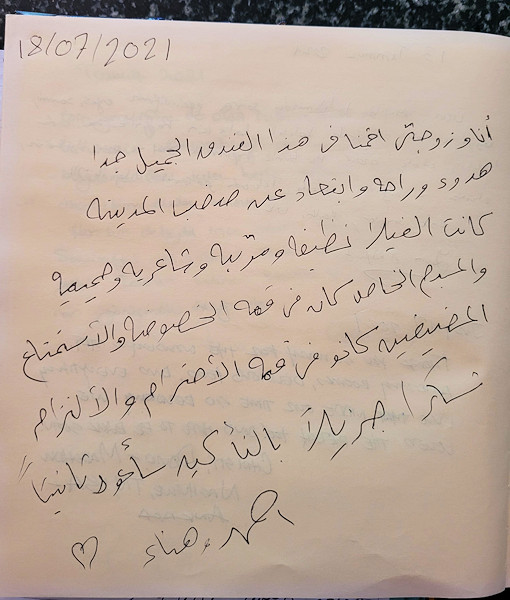 18/07/2021
أنا وزوجتي اقمنا في هذا الفندق الجميل جدا
هدوء وراحه وابتعاد عن صخب المدينه
كانت الفيلا نظيفه ومرتبة وشاعريه وحميميه
والمسبح الخاص كان في قمة الخصوصيه والأستمتاع
المضيفين كانو في قمة الأحترام والألتزام
شكرا جزيلا بالتأكيد سأعود ثانيتاً
احمد وهناء